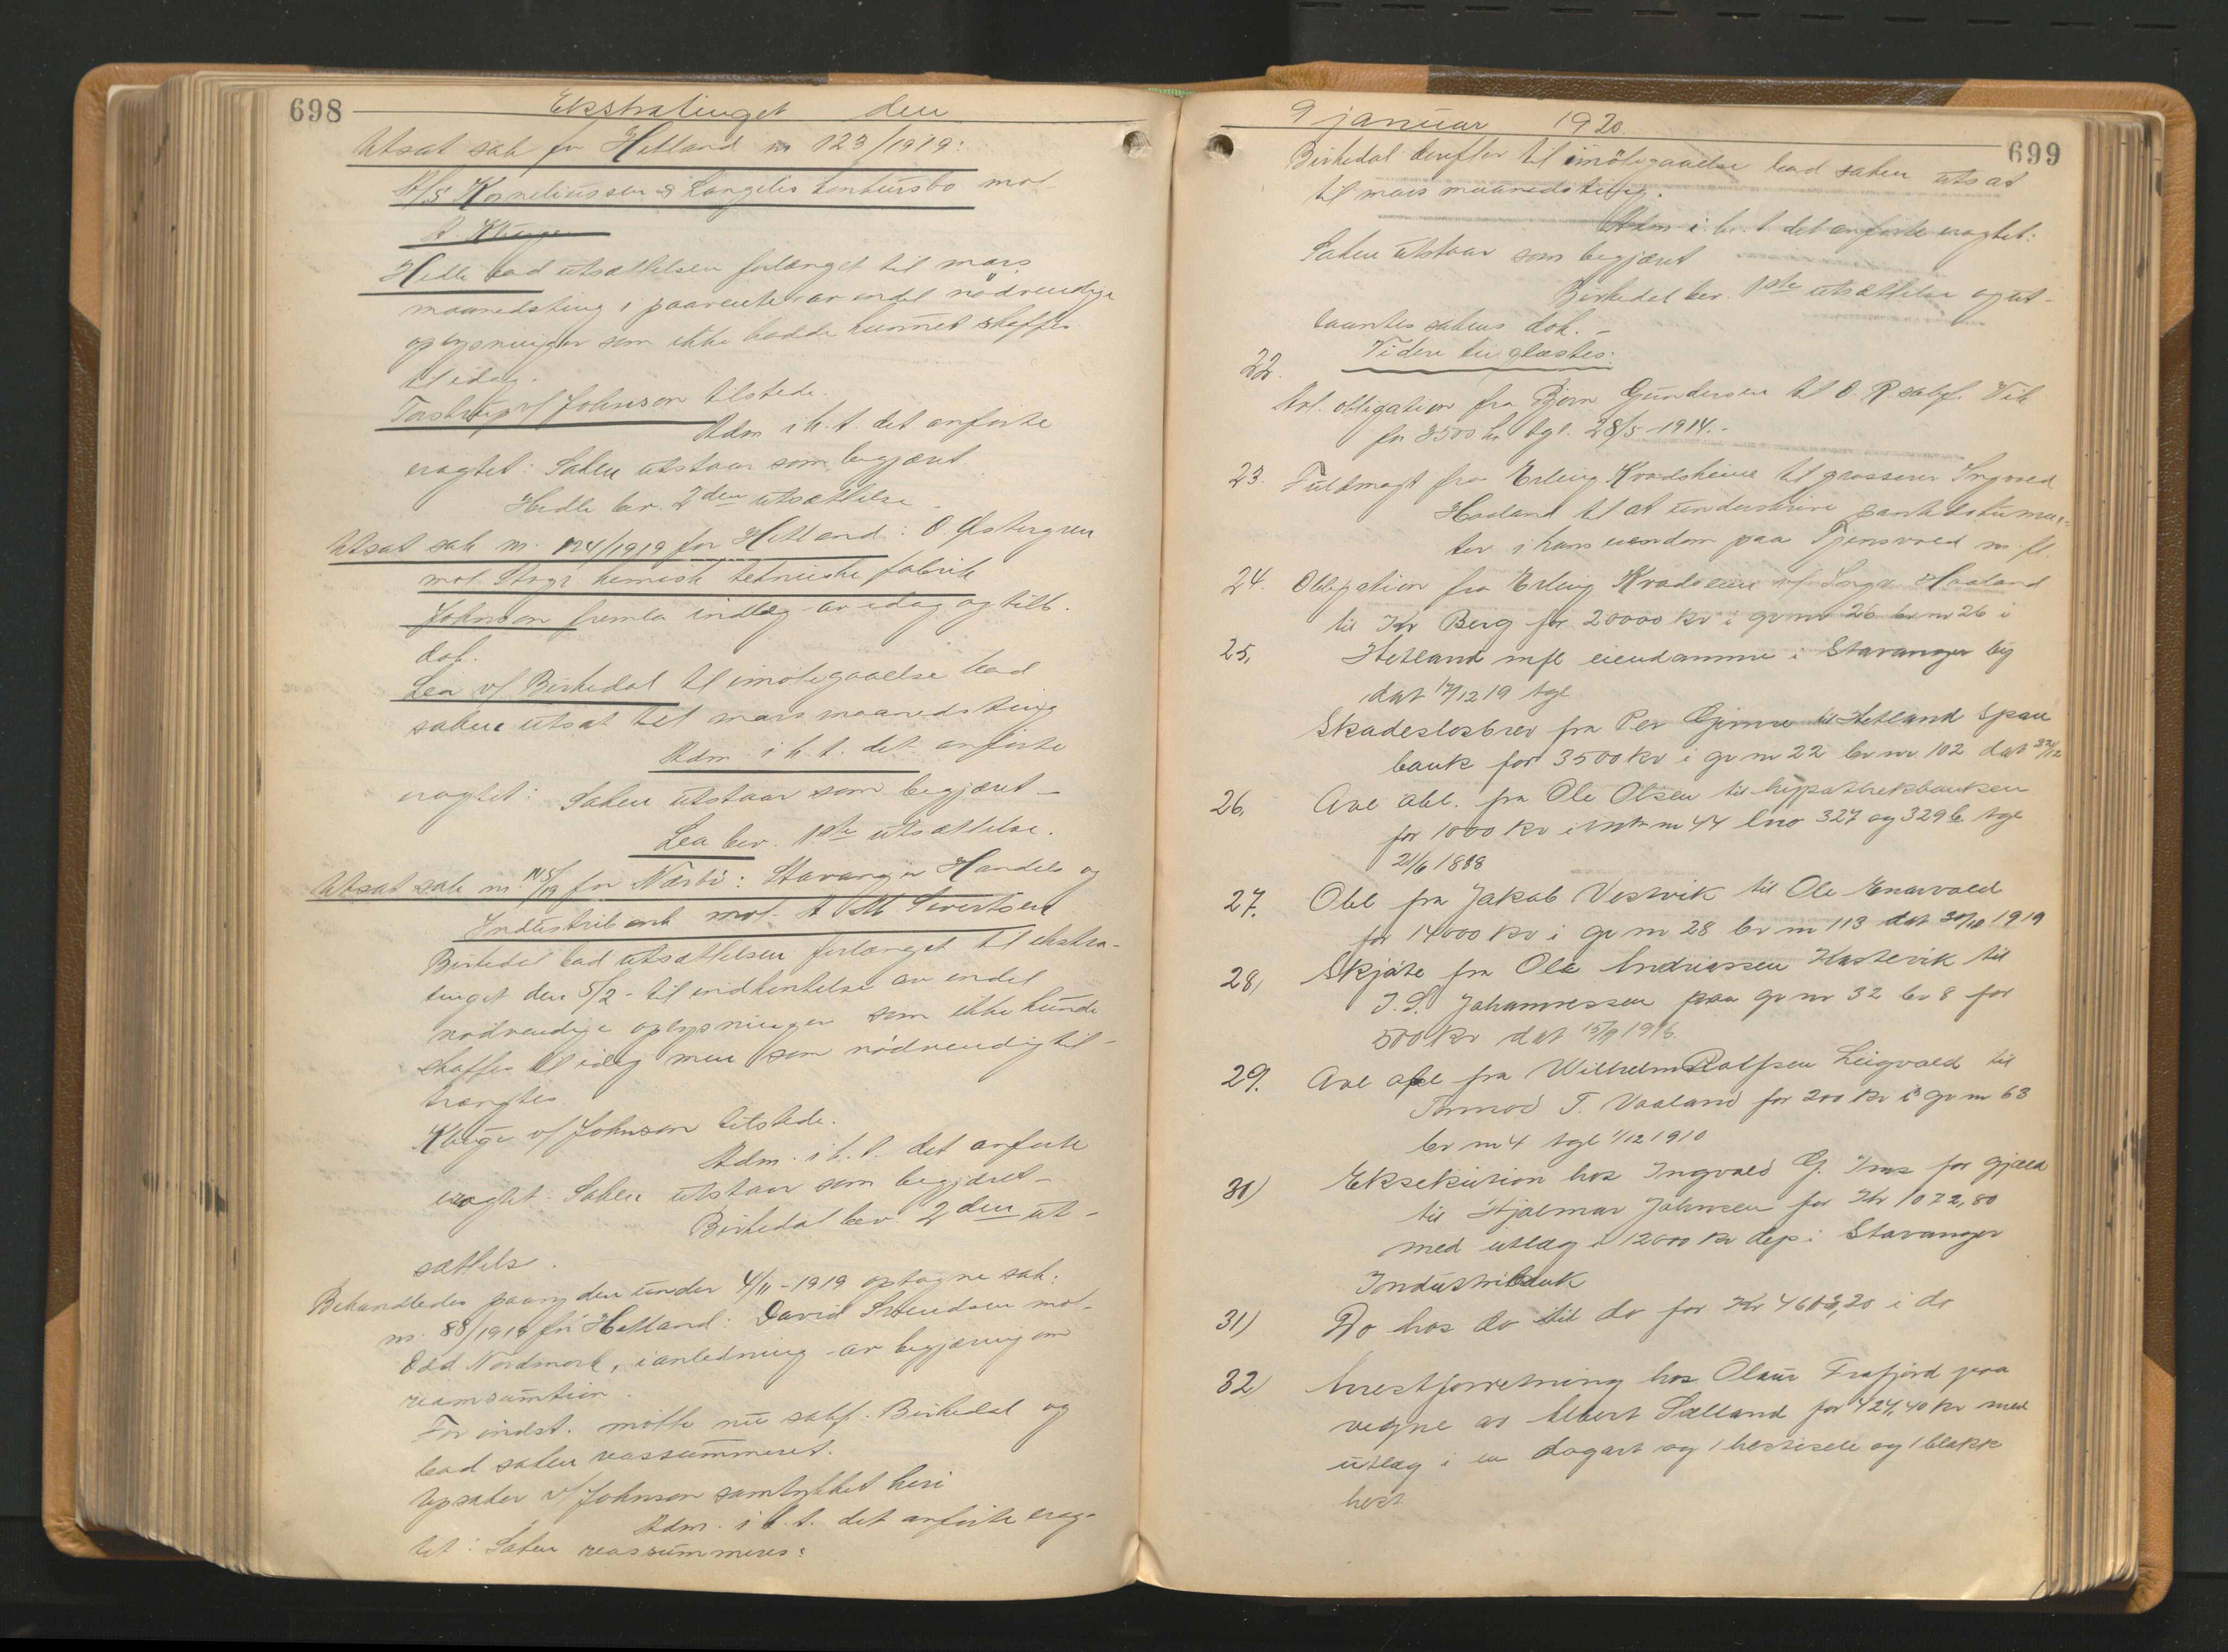 698
Ekstratinget den
Utsat sak for Hetland nr 123/1919:
A/S Korneliussen & Langelis konkursbo mot
A. Kluge
Hedle bad utsættelsen forlænget til mars
maanedsting i paavente av endel nödvendige
oplysninger som ikke hadde kunnet skaffes
til idag.
Torstrup v/ Johnson tilstede.
Adm. i h.t. det anførte
eragtet: Saken utstaar som begjæret.
Hedle bev. 2den utsættelse.
Utsat sak nr. 124/1919 for Hetland: O. Østergren
mot Stvgr. kemisk tekniske fabrik
Johnson fremla indlæg av idag og tilb.
dok.
Lea v/ Birkedal til imötegaaelse bad
saken utsat til mars maanedsting
Adm. i h.t. det anførte
eragtet: Saken utstaar som begjæret –
Lea bev. 1ste utsættelse.
Utsat sak nr. 115/19 for Nærbö: Stavanger Handels og
Industribank mot A. M. Sivertsen
Birkedal bad utsættelsen forlænget til ekstra-
tinget den 5/2 - til indhentelse av endel
nödvendige oplysninger som ikke kunde
skaffes til idag men som nödvendig til-
trængtes.
Kluge v/ Johnson tilstede.
Adm. i h.t. det anførte
eragtet: Saken utstaar som begjæret –
Birkedal bev. 2den ut-
sættelse.
Behandledes paany den under 4/11-1919 optagne sak:
nr. 88/1919 for Hetland: David Svendsen mot
Odd Nordmark, i anledning av begjæring om
reassumtion.
For indst. mötte nu sakf. Birkedal og
bad saken reassummeret.
Opsater v/ Johnson samtykket heri
Adm. i h.t. det anførte erag-
tet: Saken reassummeres:
9 januar 1920.
699
Birkedal derefter til imötegaaelse bad saken utsat
til mars maanedsting.
Adm i h.t. det anførte eragtet:
Saken utstaar som begjæret
Birkedal bev. 1ste utsættelse og ut-
laantes sakens dok. –
Videre tinglæstes:
22. Avl. obligation fra Bjørn Gundersen til O.R.sakf. Vik
for 3500 kr tgl. 28/5 1914.
23. Fuldmagt fra Erling Kvadsheim til grosserer Ingvald
Haaland til at underskrive pantedokumen-
ter i hans eiendom paa Tjensvold m. fl.
24. Obligation fra Erling Kvadsheim v/ Ingv. Haaland
til Kr Berg for 20000 kr i gr nr 26 br nr 26 i
25. Hetland mfl eiendamme i Stavanger by
dat 17/12 19 tgl
Skadeslosbrev fra Per Gjimse til Hetland Spare
bank for 3500 kr i gr nr 22 br nr 102 dat 22/12
26. Avl obl. fra Ole Olsen til hypothekbanken
for 1000 kr i mtr nr 44 lno 327 og 329 b tgl
21/6 1888
27. Obl fra Jakob Vestvik til Ole Enarvold
for 14000 kr i gr nr 28 br nr 113 dat 30/10 1919
28) Skjøte fra Ole Andreassen Hastevik til
J. S. Johannessen paa gr nr 32 br 8 for
500 kr dat 15/9 1916.
29. Avl obl fra Wilhelm Rolfsen Leigvold til
Tormod T. Vaaland for 200 kr i gr nr 63
br nr 4 tgl 1/12 1910
30) Eksekution hos Ingvald G. Ims for gjæld
til Hjalmar Johnsen for Kr 1072,80
med utlæg i 12000 kr dep i Stavanger
Industribank
31) Do hos do til do for Kr 4603,20 i do
32) Arestforretning hos Olaus Frafjord paa
vegne av Albert Sælland for 424,40 kr med
utlæg i en dogart og 1 hestesele og 1 blakk
hest.